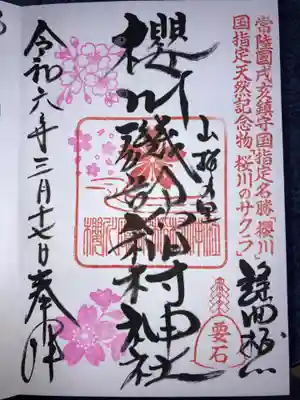 常陸國戌亥鎮守国指定名勝「櫻川」
国指定天然記念物「桜川のサクラ」
謡曲桜川
要石
山桜乃里
櫻川磯部稲村神社
令和六年三月十七日奉拝